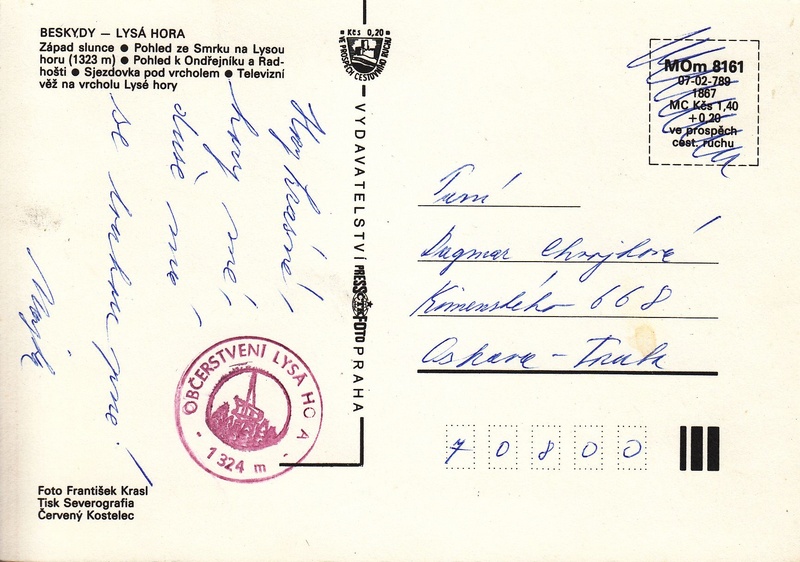 BESKYDY — LYSÁ HORA
Západ slunce ● Pohled ze Smrku na Lysou
horu (1323 m) ● Pohled k Ondřejníku a Rad-
hošti ● Sjezdovka pod vrcholem ● Televizní
věž na vrcholu Lysé hory
Kčs 0,20
VE PROSPĚCH CESTOVNÍHO RUCHU
MOm 8161
07-02-789
1867
MC Kčs 1,40
+0,20
ve prospěch
cest. ruchu
VYDAVATELSTVÍ PRESSFOTO PRAHA
hory mé,
duše mé
se
Paní
Dagmar
Komenského 668
Ostrava -
70800
OBČERSTVENÍ LYSÁ HO A
- 1324 m -
Foto František Krasl
Tisk Severografia
Červený Kostelec